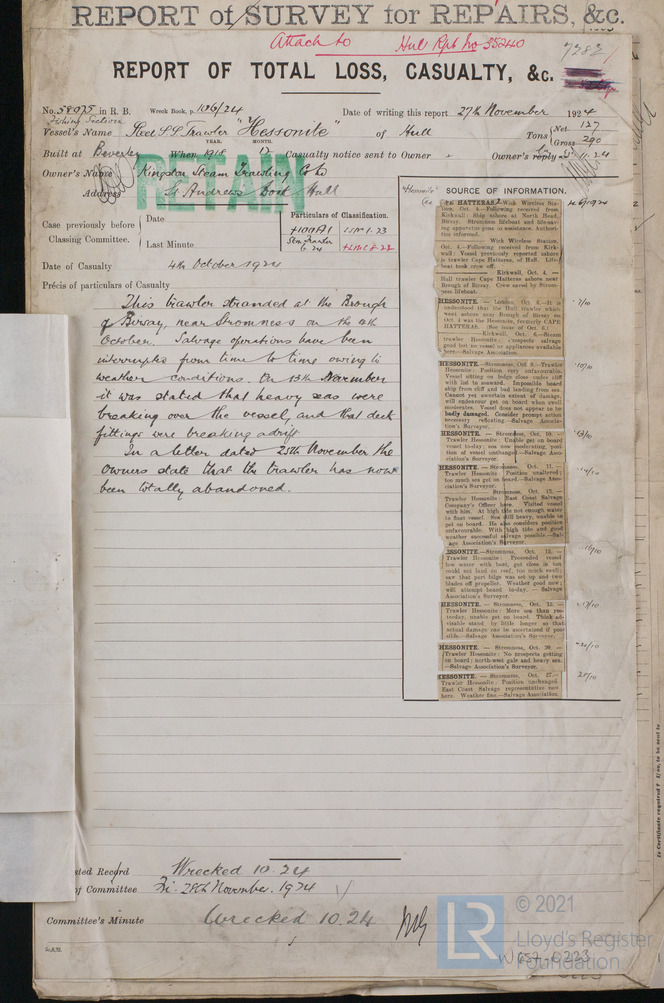 REPORT of SURVEY for REPAIRS, &c.
Attach to Hul Rpt No 35240
7282
REPORT OF TOTAL LOSS, CASUALTY, &c.
No. 58975 in R. B. Wreck Book, p. 106/24 Date of writing this report 27th November 1924
Fishing Section
Vessel's Name Steel S.S. Trawler "Hessonite" of Hull Tons { Net 127
Gross 290
YEAR. MONTH.
Built at Beverley When 1918 12 Casualty notice sent to Owner - Owner's reply 25.11.24
Owner's Name Kingston Steam Trawling Co Ltd
Address St Andrews Dock Hull
RETAIN
Case previously before Classing Committee. { Date
Last Minute
Particulars of Classification.
+100A1
Stm trawler
6.24
Date of Casualty 4th October 1924
Précis of particulars of Casualty
This trawler stranded at the Brough
of Birsay, near Stromness on the 4th
October. Salvage operations have been
interrupted from time to time owing to
weather conditions. On 13th November
it was stated that heavy seas were
breaking over the vessel, and that deck
fittings were breaking adrift.
In a letter dated 25th November the
Owners state that the trawler has now
been totally abandoned.
"Hessonite" SOURCE OF INFORMATION.
CAPE HATTERAS. Wick Wireless Station,
Oct. 4.—Following received from
Kirkwall: Ship ashore at North Head,
Birsay. Stromness lifeboat and life-saving
apparatus gone to assistance. Authorities
informed.
— Wick Wireless Station,
Oct. 4.—Following received from Kirkwall:
Vessel previously reported ashore
is trawler Cape Hatteras, of Hull. Lifeboat
took crew off.
— Kirkwall, Oct. 4.—
Hull trawler Cape Hatteras ashore near
Brough of Birsay. Crew saved by Stromness
lifeboat.
HESSONITE. — London, Oct. 6.—It is
understood that the Hull trawler which
went ashore near Brough of Birsay on
Oct. 4 was the Hessonite, formerly CAPE
HATTERAS. (See issue of Oct. 6.)
— Kirkwall, Oct. 6.—Steam
trawler Hessonite: Prospects salvage
good but no vessel or appliances available
here.—Salvage Association.
7/10
HESSONITE.—Stromness, Oct. 9.—Trawler
Hessonite: Position very unfavourable.
Vessel sitting on ledge close under cliff
with list to seaward. Impossible board
ship from cliff and bad landing from sea.
Cannot yet ascertain extent of damage,
will endeavour get on board when swell
moderates. Vessel does not appear to be
badly damaged. Consider prompt action
necessary refloating.—Salvage Association's
Surveyor.
10/10
HESSONITE. — Stromness, Oct. 10. —
Trawler Hessonite: Unable get on board
vessel to-day; sea now moderating, position
of vessel unchanged.—Salvage Association's
Surveyor.
13/10
HESSONITE. — Stromness, Oct. 11. —
Trawler Hessonite: Position unaltered;
too much sea get on board.—Salvage Association's
Surveyor.
14/10
— Stromness, Oct. 13. —
Trawler Hessonite: East Coast Salvage
Company's Officer here. Visited vessel
with him. At high tide not enough water
to float vessel. Sea still heavy, unable to
get on board. He also considers position
unfavourable. With high tide and good
weather successful salvage possible.—Salvage
Association's Surveyor.
HESSONITE.—Stromness, Oct. 15. —
Trawler Hessonite: Proceeded vessel
low water with boat, got close in but
could not land on reef, too much swell;
saw that port bilge was set up and two
blades off propeller. Weather good now;
will attempt board to-day. — Salvage
Association's Surveyor.
16/10
HESSONITE. — Stromness, Oct. —
Trawler Hessonite: More sea than yesterday,
unable get on board. Think advisable
stand by little longer so that
actual damage can be ascertained if possible.—Salvage
Association's Surveyor.
17/10
HESSONITE. — Stromness, Oct. 20. —
Trawler Hessonite: No prospects getting
on board; north-west gale and heavy sea.
—Salvage Association's Surveyor.
HESSONITE. — Stromness, Oct. 27.—
Trawler Hessonite: Position unchanged.
East Coast Salvage representative now
here. Weather fine.—Salvage Association.
sted Record Wrecked 10.24
of Committee Fri. 28th November. 1924
Committee's Minute Wrecked 10.24
LR
© 2021
Lloyd's Register
Foundation
W657-0223